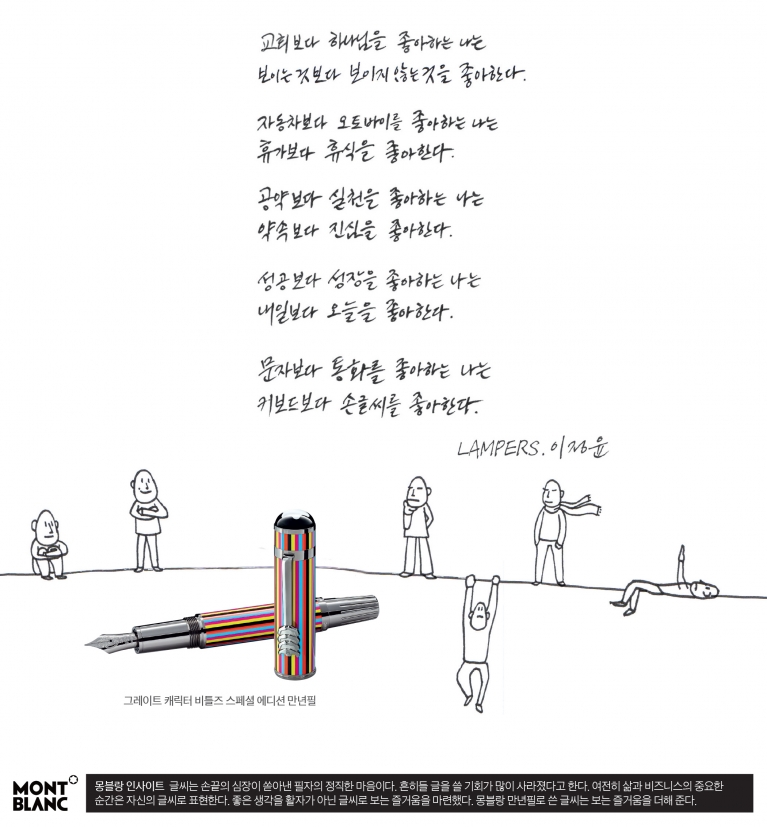 교회보다 하나님을 좋아하는 나는
보이는것보다 보이지 않는것을 좋아한다.
자동차보다 오토바이를 좋아하는 나는
휴가보다 휴식을 좋아한다.
공약보다 실천을 좋아하는 나는
약속보다 진심을 좋아한다.
성공보다 성장을 좋아하는 나는
내일보다 오늘을 좋아한다.
문자보다 통화를 좋아하는 나는
키보드보다 손글씨를 좋아한다.
LAMPERS. 이정윤
그레이트 캐릭터 비틀즈 스페셜 에디션 만년필
MONT
BLANC
몽블랑 인사이트 글씨는 손끝의 심장이 쏟아낸 필자의 정직한 마음이다. 흔히들 글을 쓸 기회가 많이 사라졌다고 한다. 여전히 삶과 비즈니스의 중요한
순간은 자신의 글씨로 표현한다. 좋은 생각을 활자가 아닌 글씨로 보는 즐거움을 마련했다. 몽블랑 만년필로 쓴 글씨는 보는 즐거움을 더해 준다.